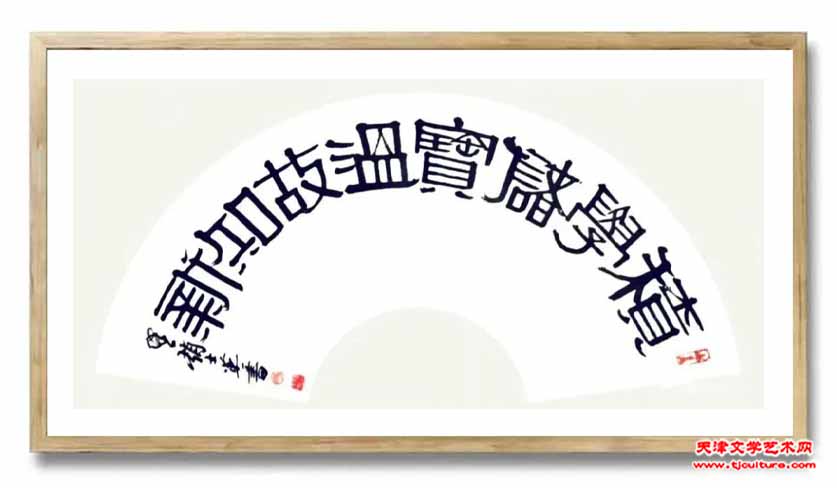 積學儲寶溫故知新
天津文学艺术网
www.tjculture.com